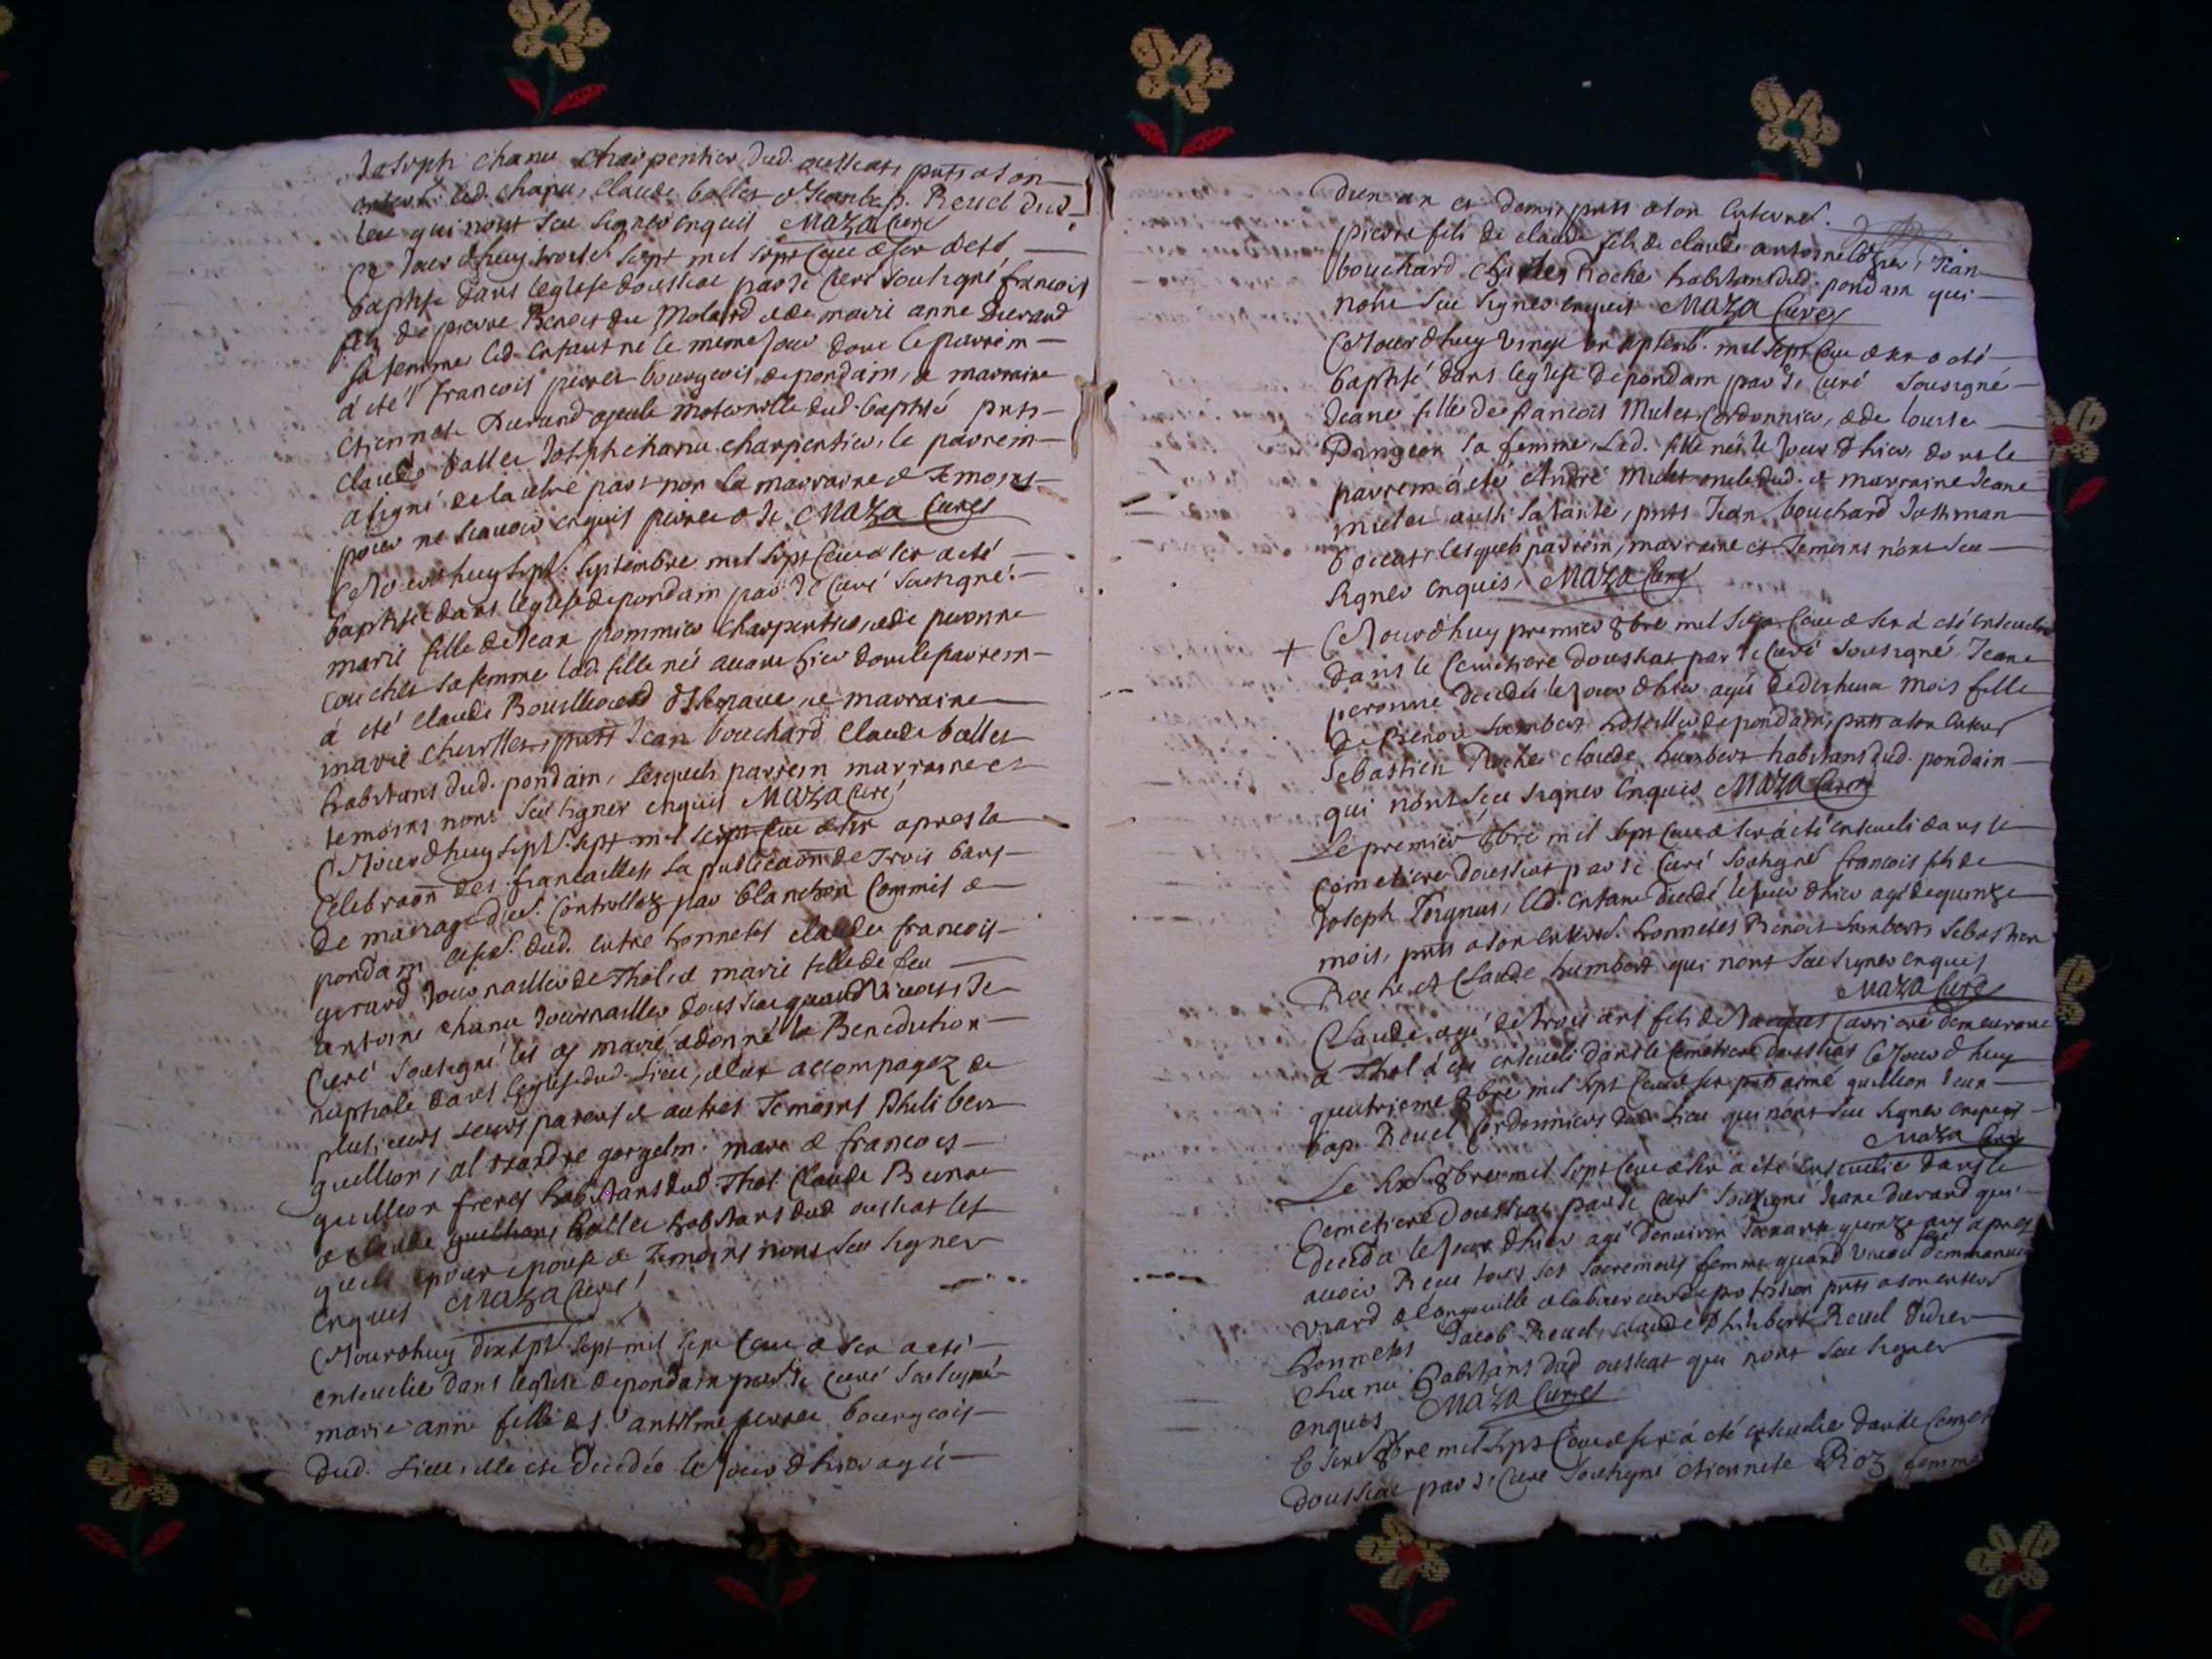 Joseph chanu charpentier dud. oussiat, pnts a son
enterr. led. chanu, claude ballet & Jean bap. Reuel dud.
lieu qui nont sceu signer enquis Maza Curé
Ce Jourdhuy troise. sept. mil sept cent & six a esté
baptisé dans leglise doussiat par Je Curé soussigné francois
fils de pierre Benoit du Molard & de marie anne Durand
sa femme led. enfant né le meme Jour dont le parrein
a été Sr francois perret bourgeois de pondain, & marraine
etiennete Durand ayeule maternelle dud. baptisé pnts
claude ballet Joseph chanu charpentier, le parrein
a signé de lautre part non la marraine & temoins
pour ne scavoir enquis perret & Je Maza Curé
Ce Jourdhuy sept. septembre mil sept cent & six a eté
baptisée dans leglise de pondain par Je Curé soussigné
marie fille de Jean pommier charpentier, & de peronne
couchet sa femme lad. fille née avant hier dont le parrein
a eté claude Bouilloud & marraine
marie pnts Jean bouchard claude ballet
habitans dud. pondain, lesquels parrein marraine et
temoins nont sceu signer enquis Maza Curé
Ce Jourdhuy sept. sept. mil sept cent & six apres la
celebraon des fiancailles, la publicaon de trois bans
de mariage controllez par blanchon Commis a
pondain dud. entre honnetes claude francois
girard Journallier de Thol, & marie fille de feu
antoine chanu Journallier doussiat quand vivoit Je
Curé soussigné les ay marié, & donné la Benediction
nuptiale dans leglise dud. lieu, & accompagez de
plusieurs leurs parens & autres temoins Philibert
guillion, alexandre gorgelin. marc & francois
guillion freres habitans dud. Thol. Claude Brunet
& claude guillions ballet habitans dud oussiat les
quels epoux epouse & temoins nont sceu signer
enquis Maza Curé
Ce Jourdhuy dixsept sept. mil sept cent & six a eté
ensevelie dans leglise de pondain par Je Curé soussigné
marie anne fille de S. antelme perret bourgeois
dud. lieu, elle est decedée le Jour dhier agée
dun an et demi, pnts a son enterre.
pierre fils de claude fils de claude antoine Jean
bouchard charles Roche habitans dud. pondain qui
nont sceu signer enquis Maza Curé
Ce Jourdhuy vingt un septemb. mil sept cent & six a eté
baptisé dans leglise de pondain par Je Curé sousigné
Jeane fille de francois Mulet Cordonnier, & de louise
Dangeon sa femme, lad. fille née le Jour dhier, dont le
parrein a eté André Mulet oncle dud. & marraine Jeane
mulet aussi sa tante, pnts Jean bouchard
lesquels parrein, marraine et temoins nont sceu
signer enquis, Maza Curé
+ Ce Jourdhuy premier 8bre mil sept cent & six a eté enseveli
dans le Cemetiere doussiat par Je Curé sousigné Jeane
peronne decedée le Jour dhier agée de dixhuit mois fille
de Benoit humbert de pondain, pnts a son enterr
Sebastien Roche claude humbert habitans dud. pondain
qui nont sceu signer enquis Maza Curé
Le premier 8bre mil sept cent & six a eté enseveli dans le
Cemetiere doussiat par Je Curé sousigné francois fils de
Joseph led. enfant decedé le Jour dhier agé de quinze
mois, pnts a son enterr. honnetes Benoit humbert, Sebastien
Roche et Claude humbert qui nont sceu signer enquis
Maza Curé
Claude agé de trois ans fils de Jacques demeurant
a Thol a eté enseveli dans le Cemetiere doussiat Ce Jourdhuy
quatrieme 8bre mil sept cent & six pnts aimé guillion Jean
bap. Reuel Cordonniers dud. lieu qui nont sceu signer enquis
Maza Curé
Le six 8bre mil sept cent & six a eté ensevelie dans le
Cemetiere doussiat par Je Curé sousigné Jeane durand qui
deceda le Jour dhier agé denviron soixante quinze ans apres
avoir Receu tous ses sacremens femme quand vivoit demmanuel
viard de longeville & laboureur de profession pnts a son enterr
honnetes Jacob Reuel, claude Philibert Reuel Didier
chanu habitans dud oussiat qui nont sceu signer
enquis Maza Curé
8bre mil sept cent & six a eté ensevelie dans le Cemet
doussiat par Je Curé sousigné etiennete Rioz femme